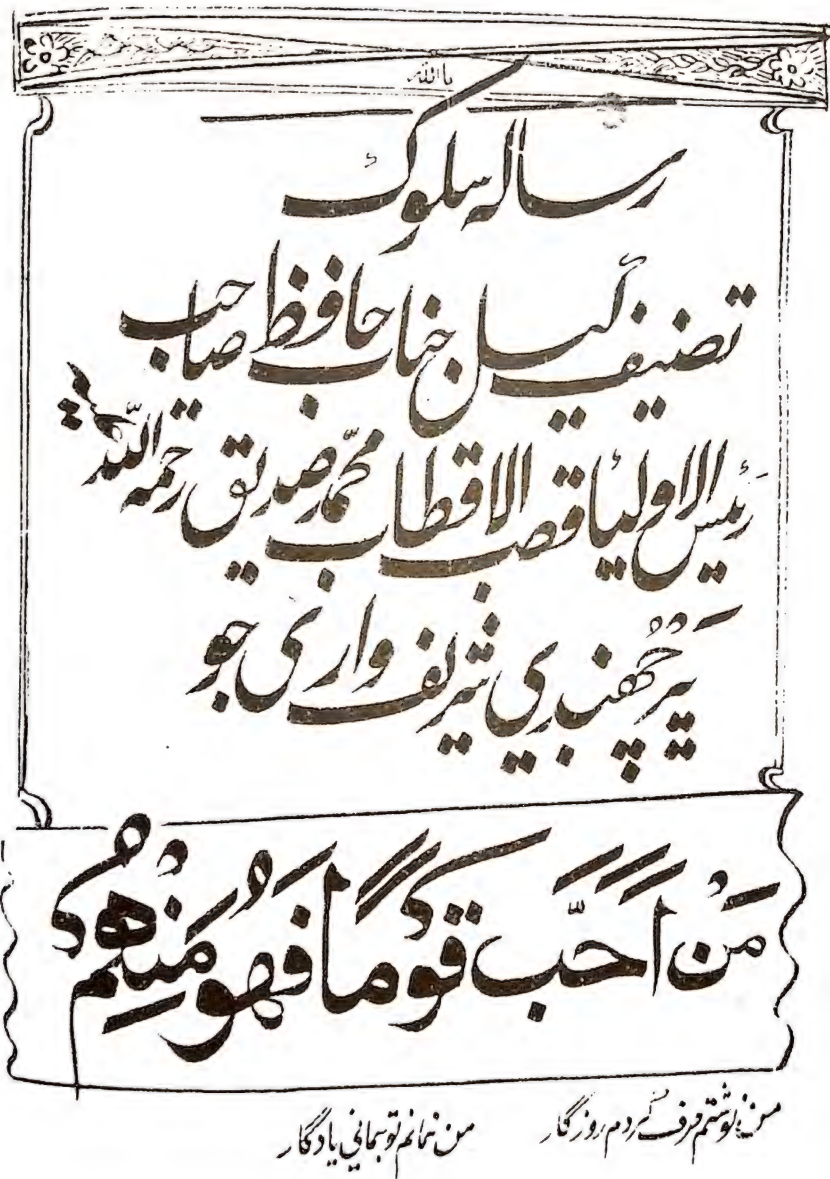 یا الله
رسالہ سلوک
تصنیف ٿیل جناب حافظ صاحب
رئیس الاولیا قطب الاقطاب محمّد صدیق رحمۃ اللہ علیہ
پیر جھنڊي شریف واري جو
مَنْ اَحَبَّ قَوْمًا فَهُوَ مِنْهُمْ
من نوشتم صرف کردم روزگار من نمانم تو بماني یادگار